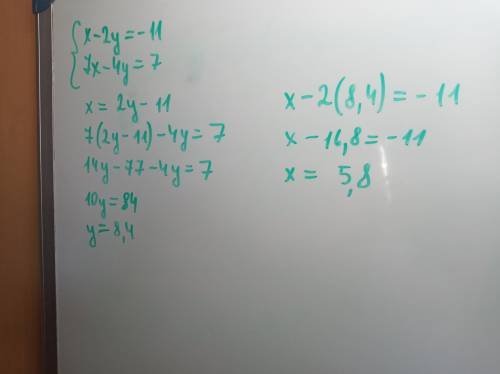 x-2y=-11
7x-4y=7
x=2y-11
7(2y-11)-4y=7
14y-77-4y=7
10y=84
y=8,4
x-2(8,4)=-11
x-16,8=-11
x=5,8